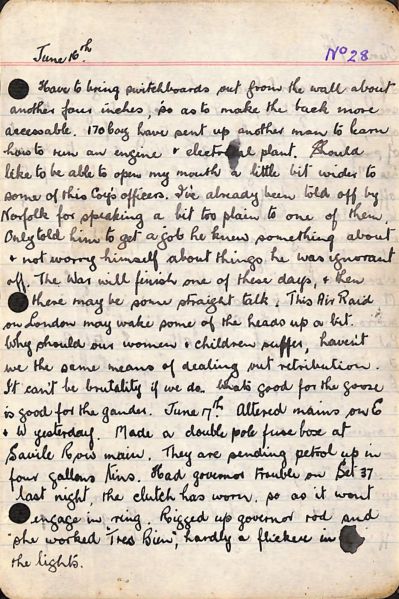 June 16th. No 28
Have to bring switchboards out from the wall about
another four inches, so as to make the back more
accessable. 170 Coy have sent up another man to learn
how to run an engine & electrical plant. Should
like to be able to open my mouth a little bit wider to
some of this Corps officers. I've already been told off by
Norfolk for speaking a bit too plain to one of them.
Only told him to get a job he knew something about
& not worry himself about things he was ignorant
off. The War will finish one of these days, & then
there may be some straight talk. This Air Raid
on London may wake some of the heads up a bit.
Why should our women & children suffer, haven't
we the same means of dealing out retribution.
It can't be brutality if we do. Whats good for the goose
is good for the gander. June 17th. Altered mains on E
& W yesterday. Made a double pole fuse box at
Savile Row main. They are sending petrol up in
four gallons tins. Had governor trouble on Set 37
last night, the clutch has worn. so as it wont
engage in ring. Rigged up governor rod and
she worked "Tres Bien", hardly a flicker in
the lights.